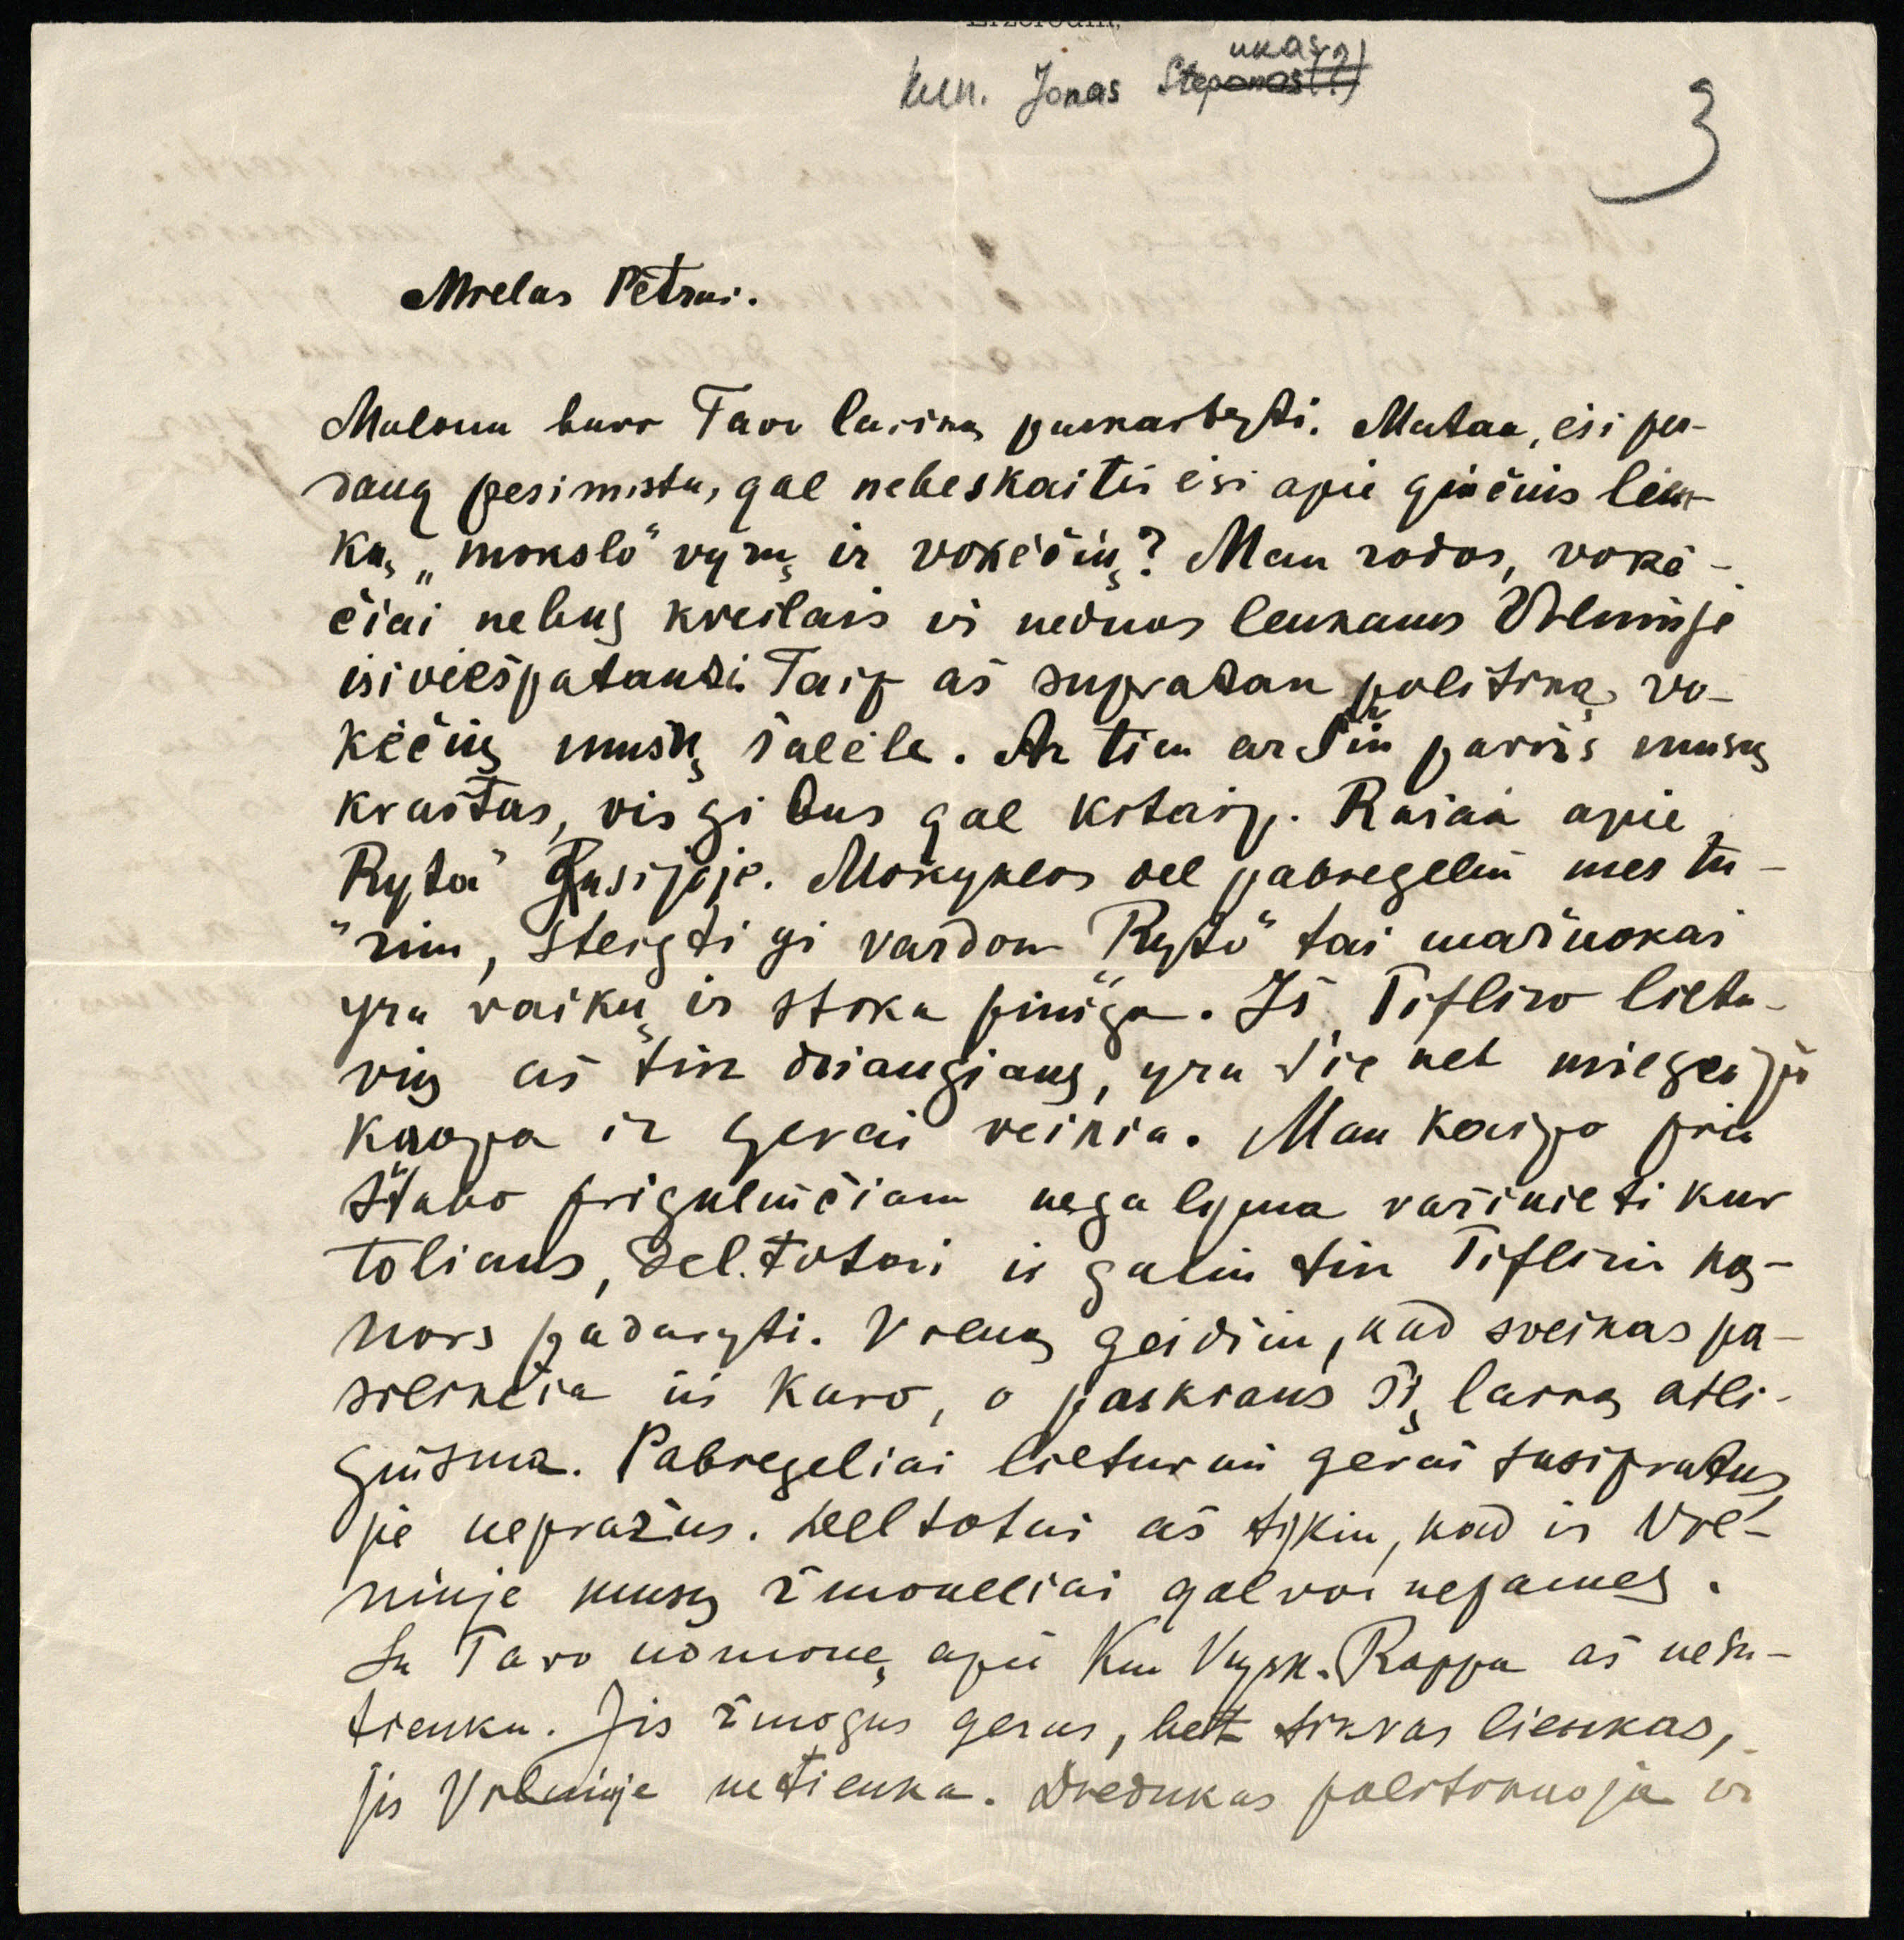 Erzeroum,
kun. Jonas Stepanas(?)
ukas(?)
3
Mielas Petrai.
Malonu buvo Tavo laišką paskaityti. Matau, esi per-
daug pesimistu, gal nebeskaitei esi apie ginčius lien-
kų „mokslo" vyrų ir vokečių? Man rodos, voke-
čiai nebus kveilais ir neduos lenkams Vilniuje
isiviešpatauti. Taip aš supratau politiką vo-
kečių musų šalele. Ar tiem ar šiu parviš musų
kraštas, visgi bus gal kitaip. Rašai apie
Rytą" Rusijoje. Mokyklos del pabiegelių mes tu-
rim, steigti gi vardom „Ryto" tai mažuokai
yra vaikų ir stoka pinigo. Iš Tifliso lietu-
vių aš tin džiaugiaus, yra šie net mieges jų
kuopa ir gerai veikia. Man kaipo prie
štabo prigulinčiam negalyma važinieti kur
toliaus, del.totai ir galiu tin Tiflisi ką-
nors padaryti. Vieną geidžiu, kad sveikas pa-
silikčia iš karo, o paskiaus šį laiką atli-
ginsma. Pabiegeliai lietuviai gerai susipratus
jie nepražus. Deltotai aš tykiu, kad ir Vil-
niuje musų žmoneliai galvos nepames.
Su Tavo nomone apie Kun Vysk. Roppa aš nesu-
tienku. Jis žmogus geras, bet tikras lienkas,
jis Vilniuje netienka. Diedukas politikuoja ir